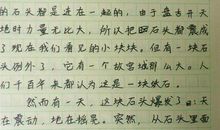 的石头智是连在一起的，由于盘古开天
地时力量无比大，所以把四石头智震成
了现在我们看见的小块块，但有一块石
头例外了，它有一个故宫城那么大。人
们千百年来都认为这是一块妖石。
然而有一天，这块石头爆发了：天
在震动，地在摇晃。突然，从石头里面